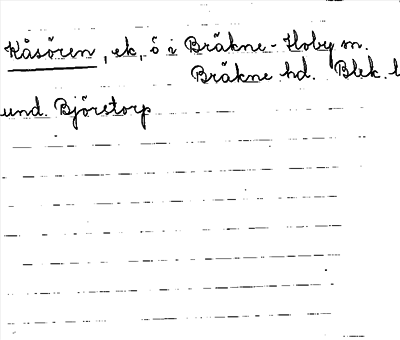 Kåsören, ek, ö i Bräkne-Hoby m.
Bräkne hd. Blek. l
und. Björstorp